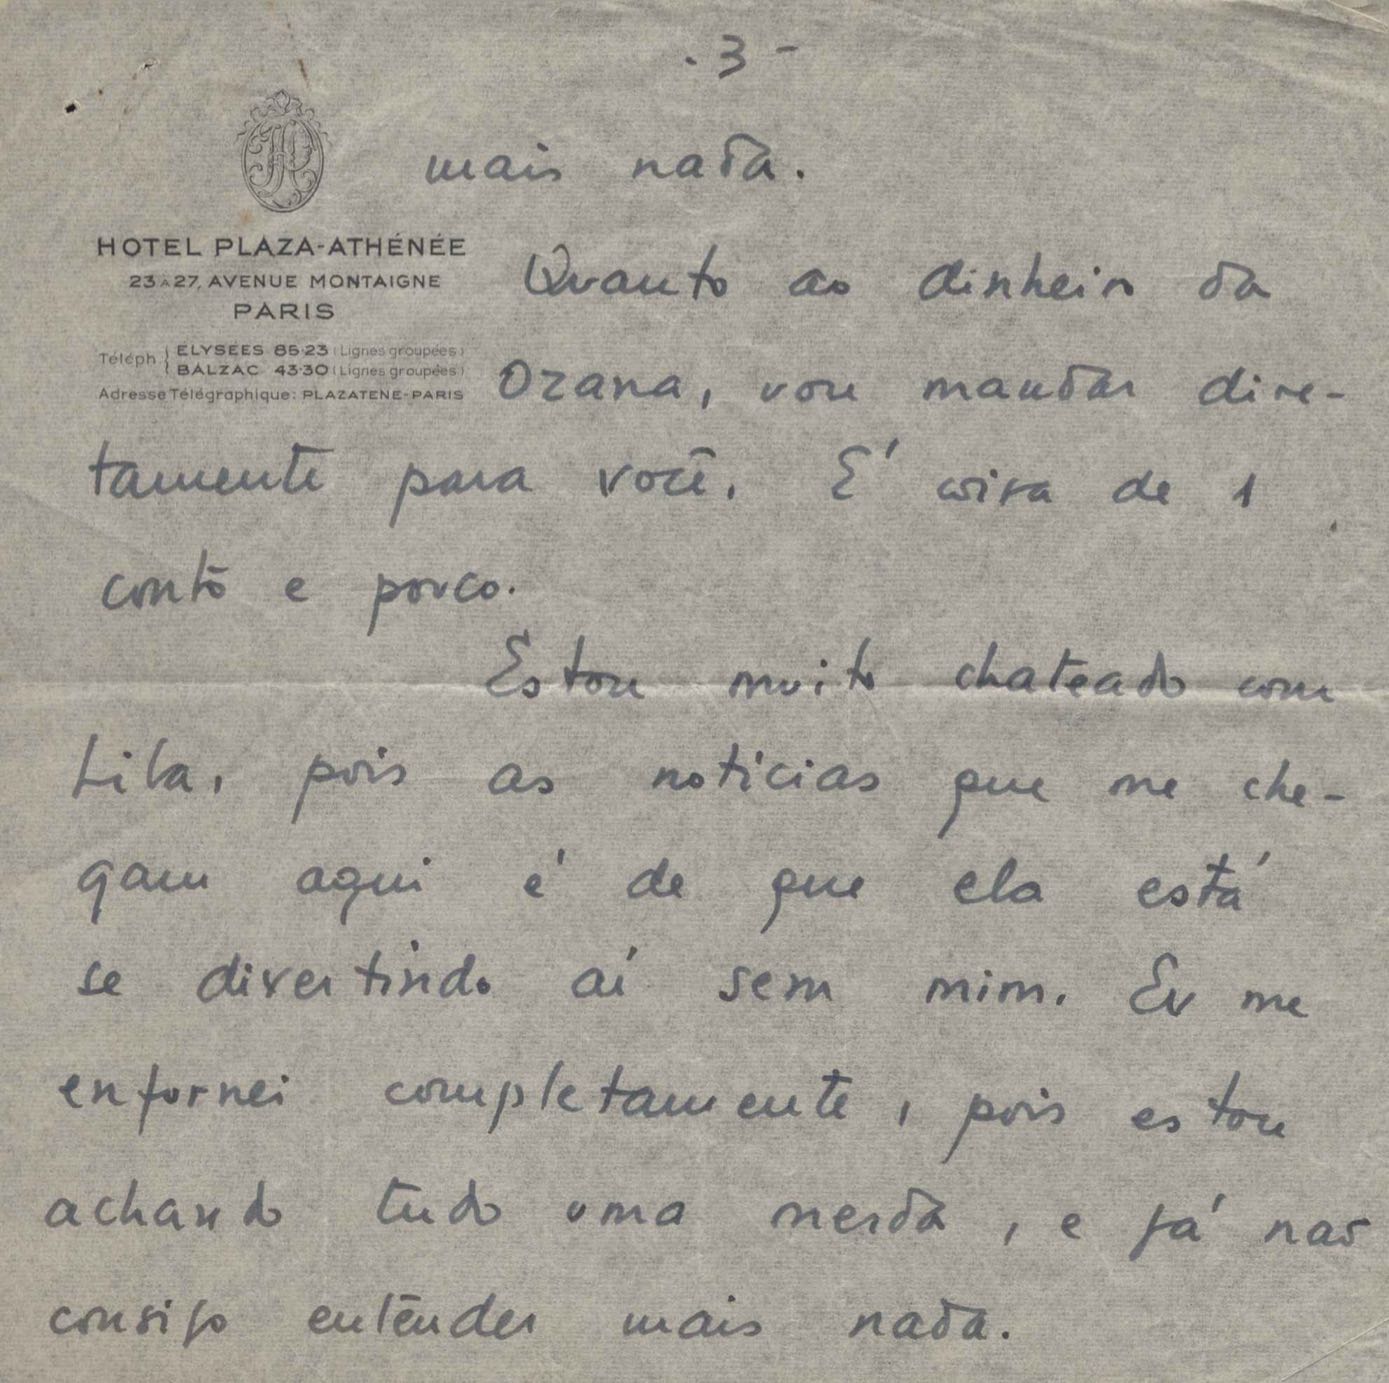 . 3 -
mais nada.
HOTEL PLAZA-ATHÉNÉE
23 À 27, AVENUE MONTAIGNE
PARIS
Téléph { ELYSÉES 85·23 (Lignes groupées)
BALZAC 43·30 (Lignes groupées)
Adresse Télégraphique: PLAZATENE-PARIS
Quanto ao dinheiro da
Ozana, vou mandar dire-
tamente para você. É coisa de 1
conto e pouco.
Estou muito chateado com
Lila, pois as noticias que me che-
gam aqui é de que ela está
se divertindo aí sem mim. Eu me
enfornei completamente, pois estou
achando tudo uma merda, e já não
consigo entender mais nada.